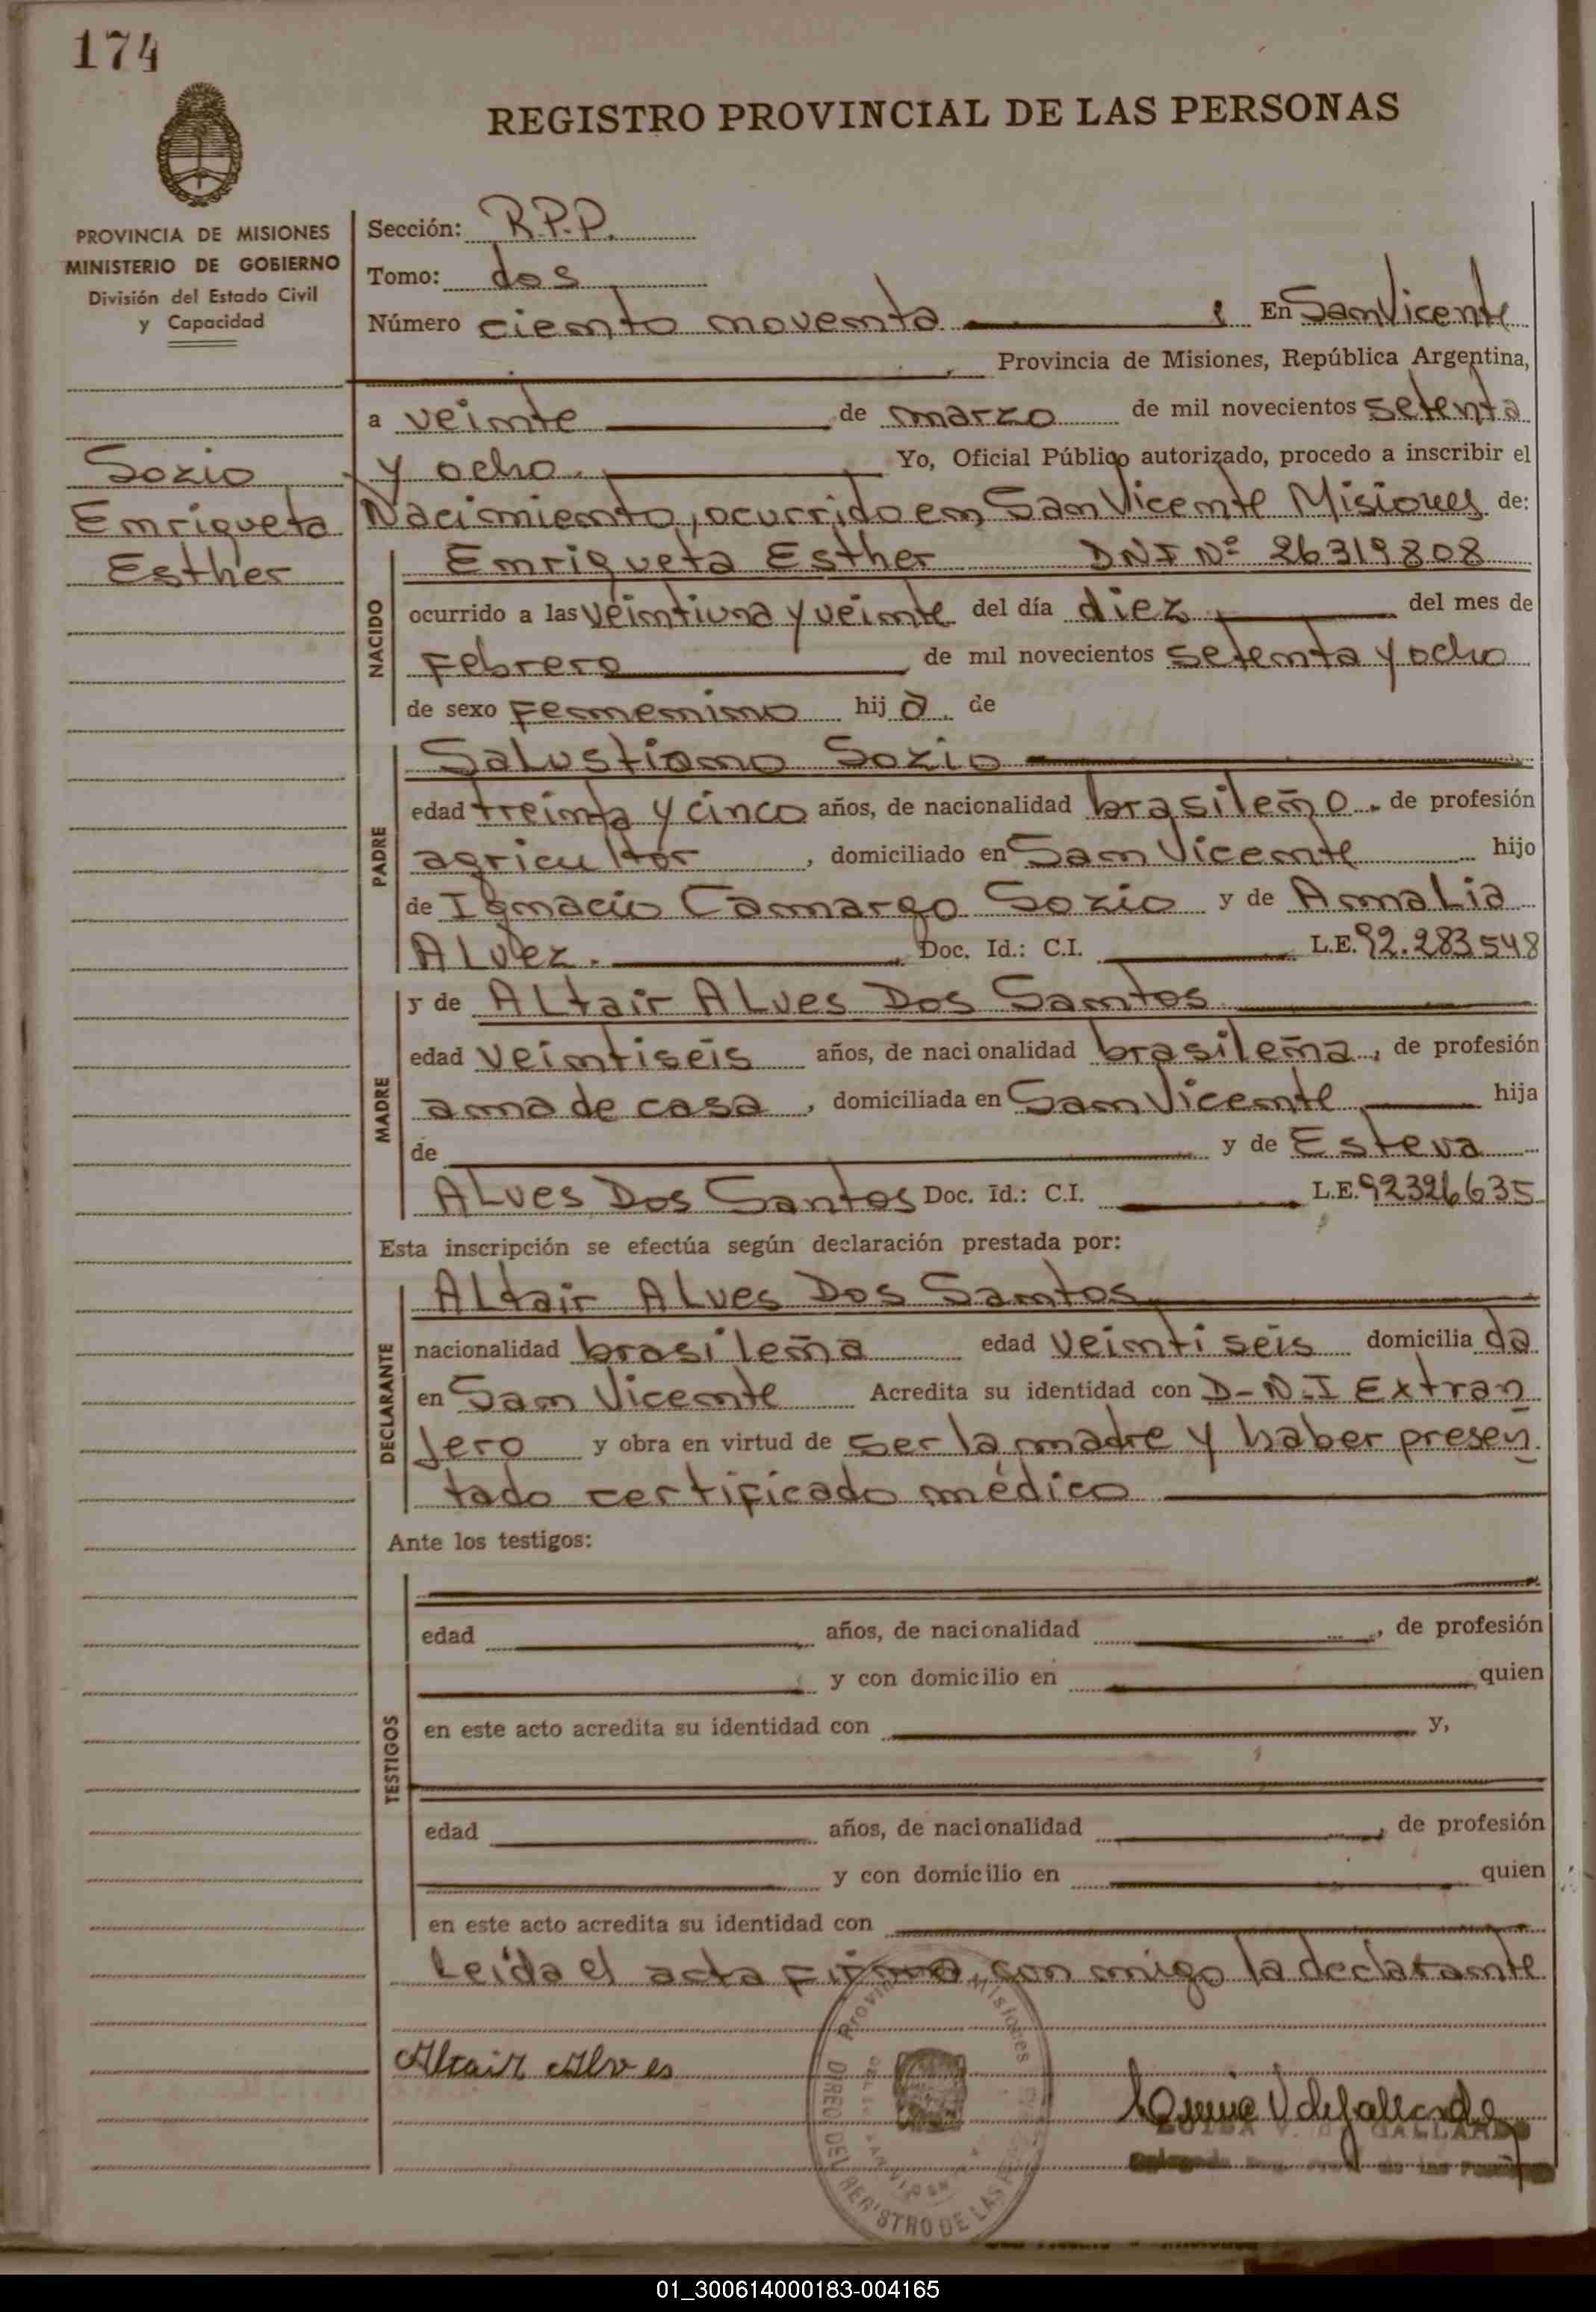 174
REGISTRO PROVINCIAL DE LAS PERSONAS
PROVINCIA DE MISIONES
MINISTERIO DE GOBIERNO
División del Estado Civil
y Capacidad
Sozio
Enriqueta
Esther
Sección: R.P.P.
Tomo: dos
Número ciento noventa , En San Vicente
Provincia de Misiones, República Argentina,
a veinte de marzo de mil novecientos setenta
y ocho. Yo, Oficial Público autorizado, procedo a inscribir el
Nacimiento, ocurrido en San Vicente Misiones de:
NACIDO
Enriqueta Esther DNI Nº 26319808
ocurrido a las veintiuna y veinte del día diez del mes de
Febrero de mil novecientos setenta y ocho
de sexo Femenino hija de
PADRE
Salustiano Sozio
edad treinta y cinco años, de nacionalidad brasileño, de profesión
agricultor, domiciliado en San Vicente hijo
de Ignacio Camargo Sozio y de Amalia
Alvez. Doc. Id.: C.I. L.E. 92.283548
MADRE
y de Altair Alves Dos Santos
edad veintiseis años, de nacionalidad brasileña, de profesión
ama de casa, domiciliada en San Vicente hija
de y de Esteva
Alves Dos Santos Doc. Id.: C.I. L.E. 92326635
Esta inscripción se efectúa según declaración prestada por:
DECLARANTE
Altair Alves Dos Santos
nacionalidad brasileña edad veintiseis domiciliada
en San Vicente Acredita su identidad con D-N.I Extran
jero y obra en virtud de ser la madre y haber presen
tado certificado médico
Ante los testigos:
TESTIGOS
edad años, de nacionalidad , de profesión
y con domicilio en quien
en este acto acredita su identidad con y,
edad años, de nacionalidad , de profesión
y con domicilio en quien
en este acto acredita su identidad con
Leída el acta Firma con migo la declarante
Altair Alves
Provincia Misiones
REGISTRO DE LAS
01_300614000183-004165